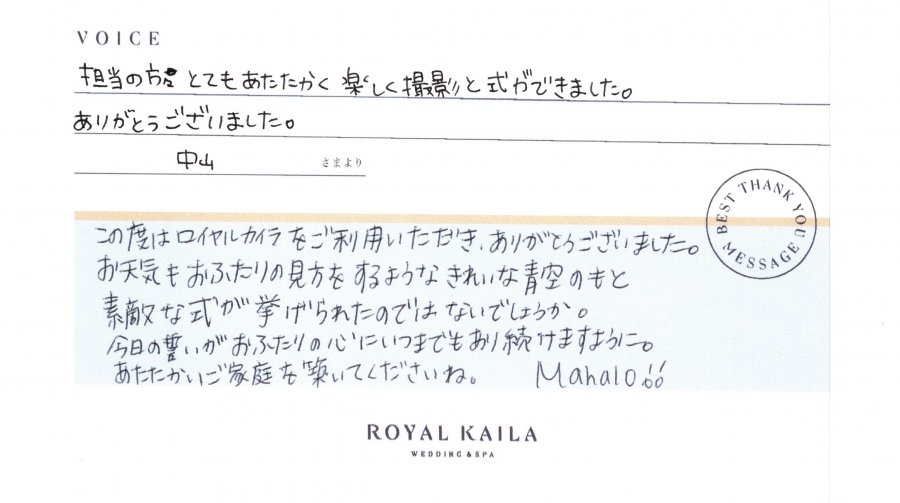 VOICE
担当の方とてもあたたかく楽しく撮影と式ができました。
ありがとうございました。
中山 さまより
BEST THANK YOU MESSAGE
この度はロイヤルカイラをご利用いただき、ありがとうございました。
お天気もおふたりの見方をするようなきれいな青空のもと
素敵な式が挙げられたのではないでしょうか。
今日の誓いがおふたりの心にいつまでもあり続けますように。
あたたかいご家庭を築いてくださいね。 Mahalo!!
ROYAL KAILA
WEDDING & SPA